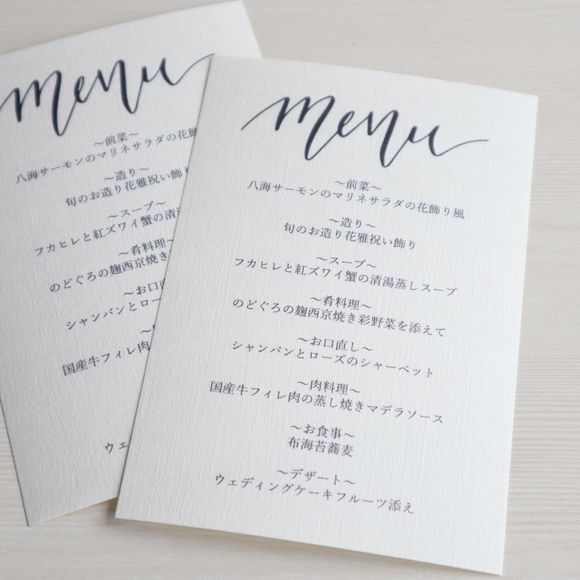 menu
～前菜～
八海サーモンのマリネサラダの花飾り風
～造り～
旬のお造り花雅祝い飾り
～スープ～
フカヒレと紅ズワイ蟹の清湯蒸しスープ
～肴料理～
のどぐろの麹西京焼き彩野菜を添えて
～お口直し～
シャンパンとローズのシャーベット
～肉料理～
国産牛フィレ肉の蒸し焼きマデラソース
～お食事～
布海苔蕎麦
～デザート～
ウェディングケーキフルーツ添え
menu
～前菜～
八海サーモンのマリネサラダの花飾
～造り～
旬のお造り花雅祝い飾り
～スープ～
フカヒレと紅ズワイ蟹の清湯
～肴料理～
のどぐろの麹西京焼き
～お口直
シャンパンとロー
国産牛フィレ肉
ウェ